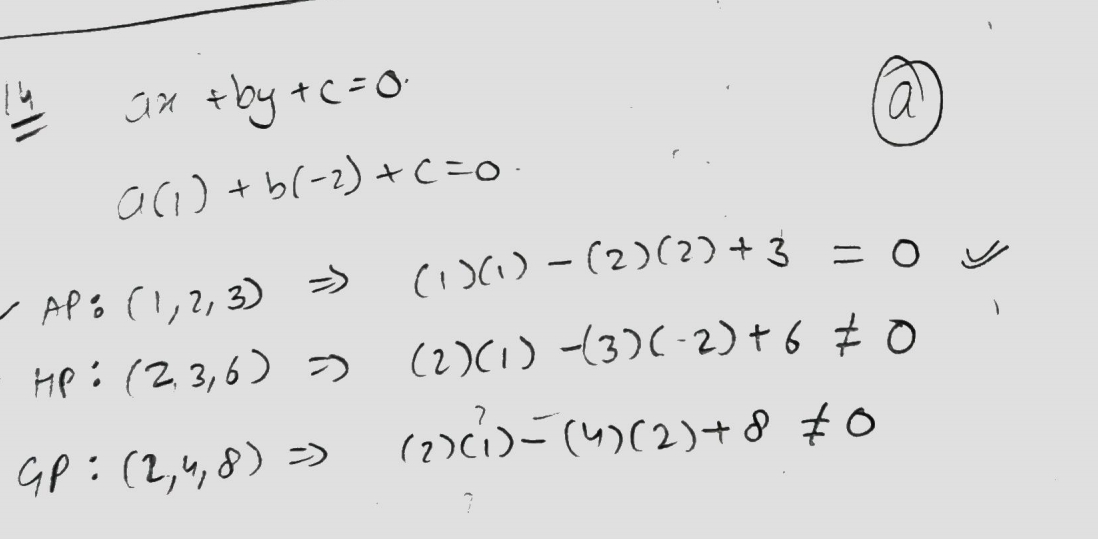 14 ax + by + c = 0.
(a)
a(1) + b(-2) + c = 0.
✓ AP: (1, 2, 3) ⇒ (1)(1) - (2)(2) + 3 = 0 ✓
HP: (2, 3, 6) ⇒ (2)(1) - (3)(-2) + 6 ≠ 0
GP: (2, 4, 8) ⇒ (2)(1) - (4)(2) + 8 ≠ 0